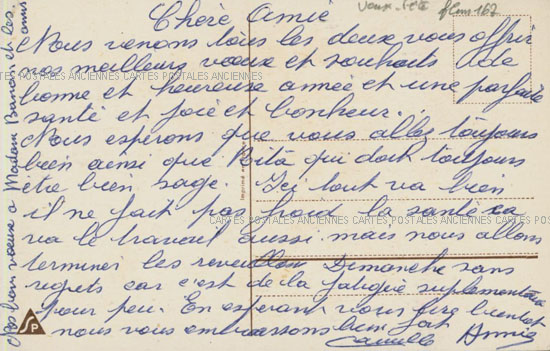 Chère Amie
Nous venons tous les deux vous offrir
nos meilleurs vœux et souhaits de
bonne et heureuse année et une parfaite
santé et joie et bonheur...
Nous espérons que vous allez toujours
bien ainsi que Rita qui doit toujours
etre bien sage. Ici tout va bien
il ne fait pas froid la santé ca
va le travail aussi mais nous allons
terminer les reveillon Dimanche sans
regrets car c'est de la fatigue suplementaire
pour peu. En esperant vous lire bientot
nous vous embrassons bien fort
Camille Annie
bons vœux a Madame et les amis
Imprimé
CARTES POSTALES ANCIENNES CARTES POSTALES ANCIENNES CARTES POSTALES ANCIENNES
CARTES POSTALES ANCIENNES CARTES POSTALES ANCIENNES CARTES POSTALES ANCIENNES
SP